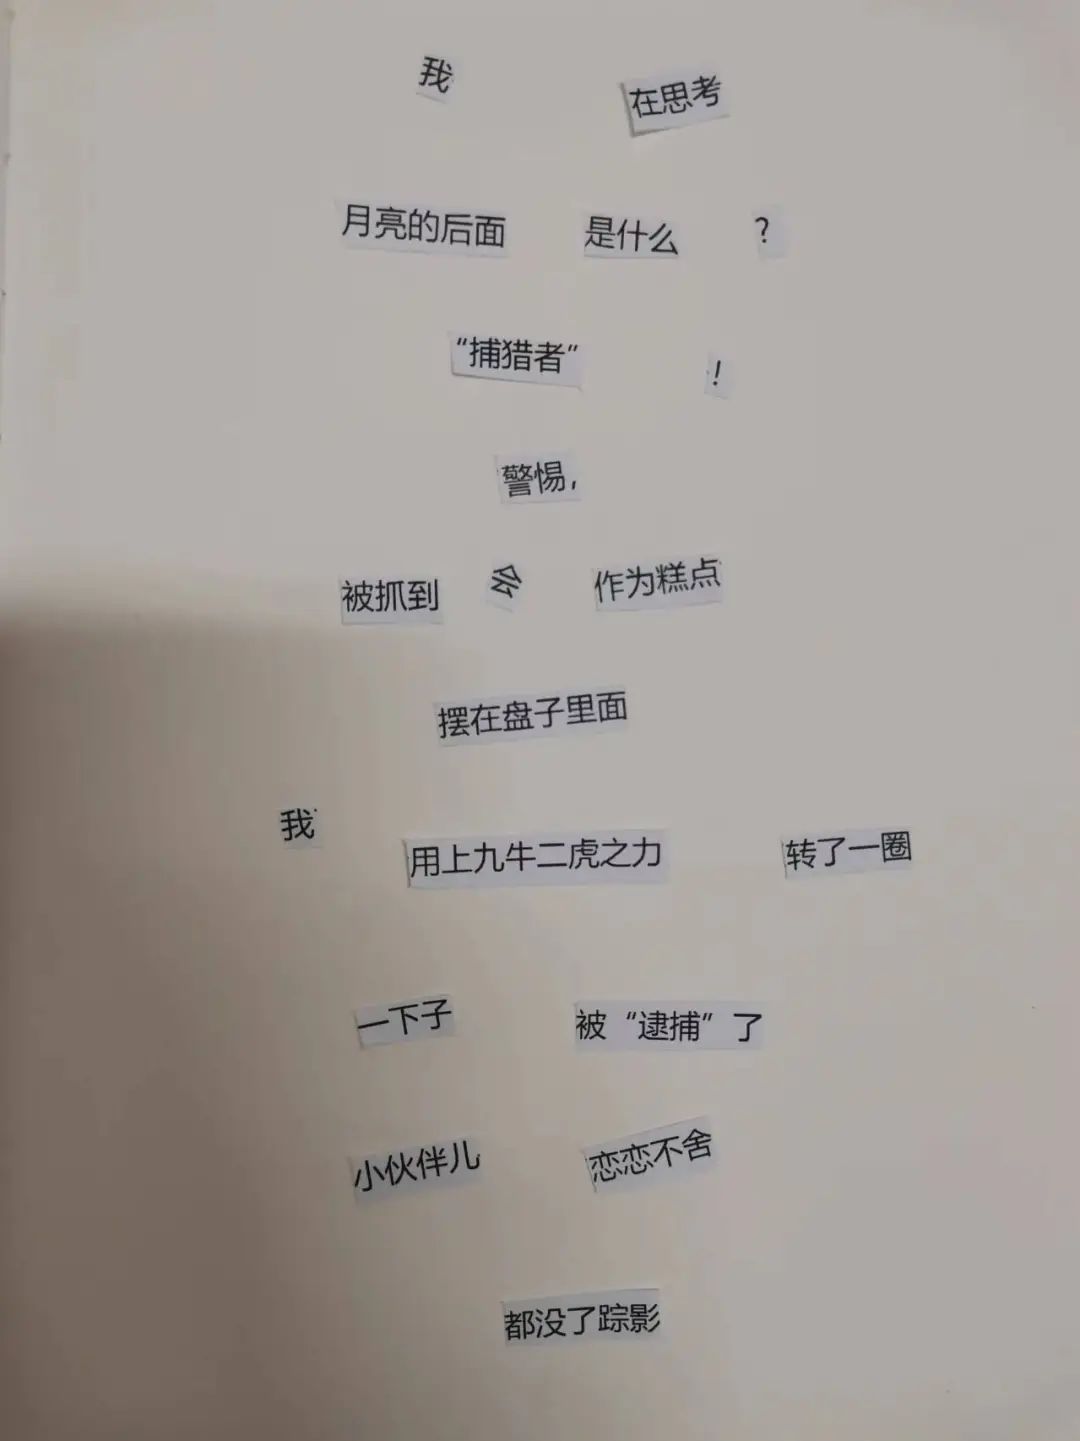 我 在思考
月亮的后面 是什么 ?
“捕猎者” !
警惕,
被抓到 会 作为糕点
摆在盘子里面
我 用上九牛二虎之力 转了一圈
一下子 被“逮捕”了
小伙伴儿 恋恋不舍
都没了踪影